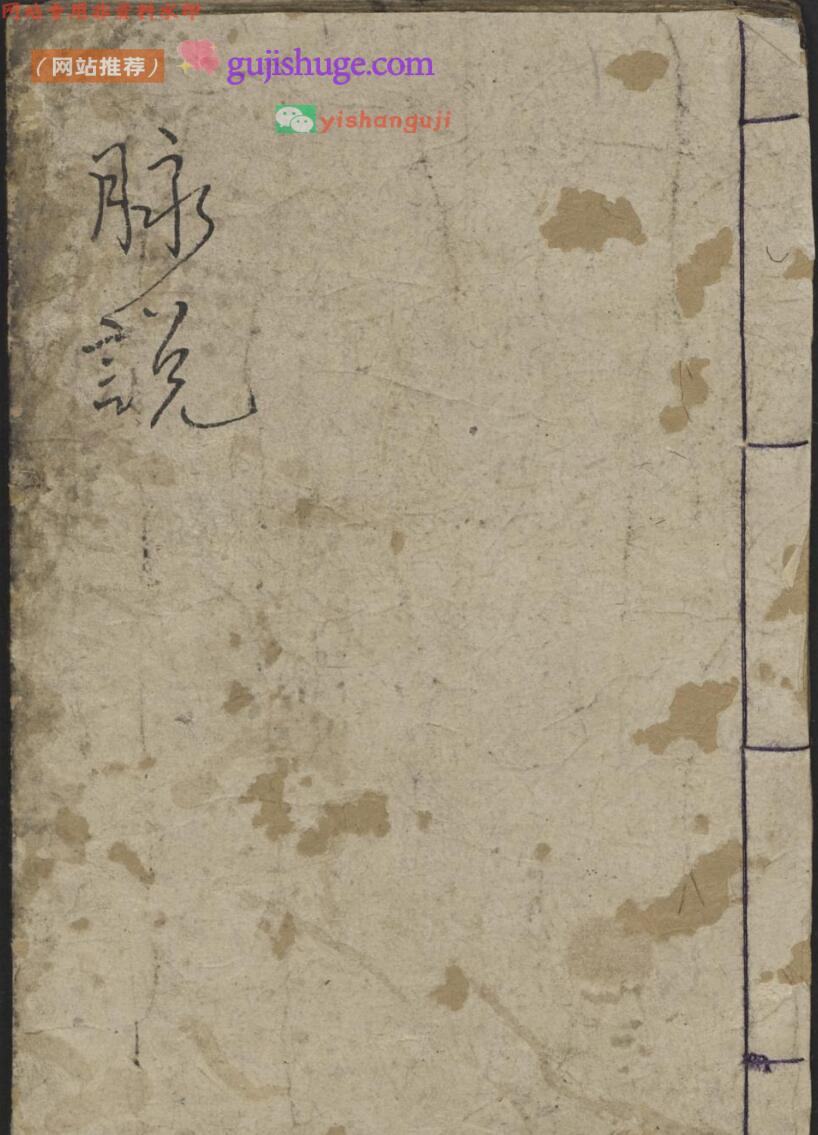 网站专用非资料水印
（网站推荐）
gujishuge.com
yishanguji
脉
説